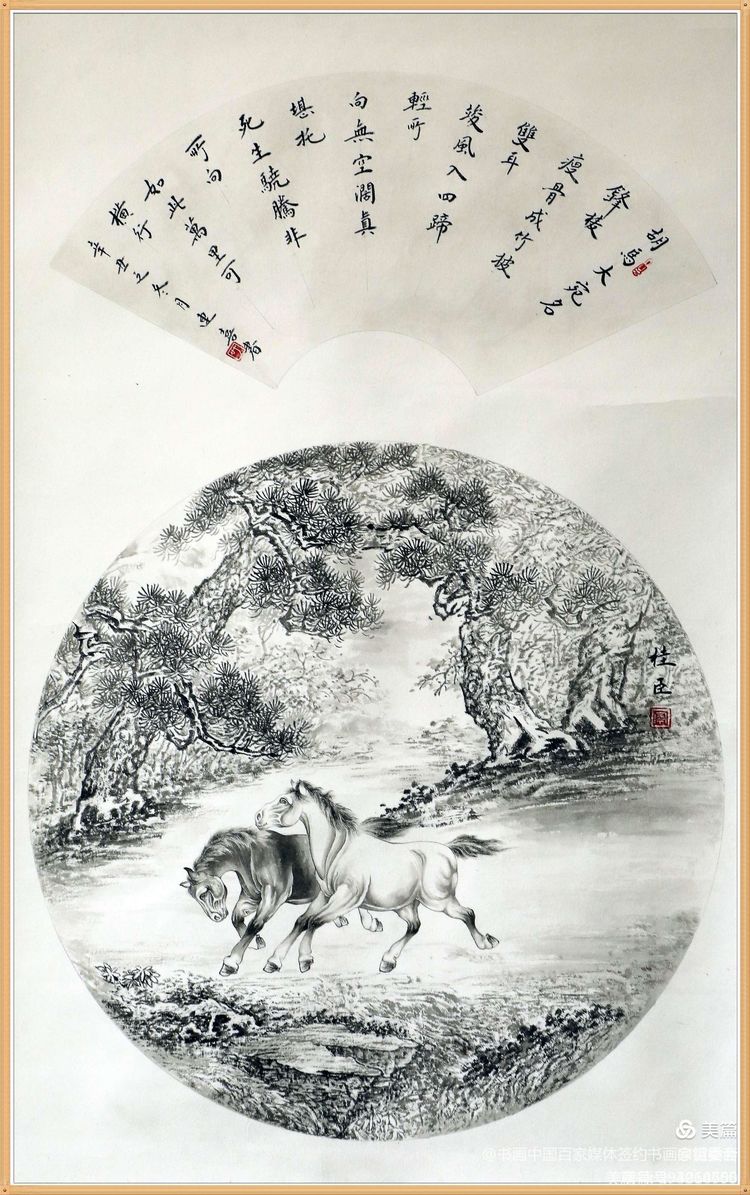 胡馬大宛名
鋒棱
瘦骨成竹披
雙耳
竣風入四蹄
輕所
向無空濶真
堪托
死生驍騰非
所向
如此萬里可
橫行
辛丑之冬月喜書
桂臣
美篇
@书画中国百家媒体签约书画家
美篇号